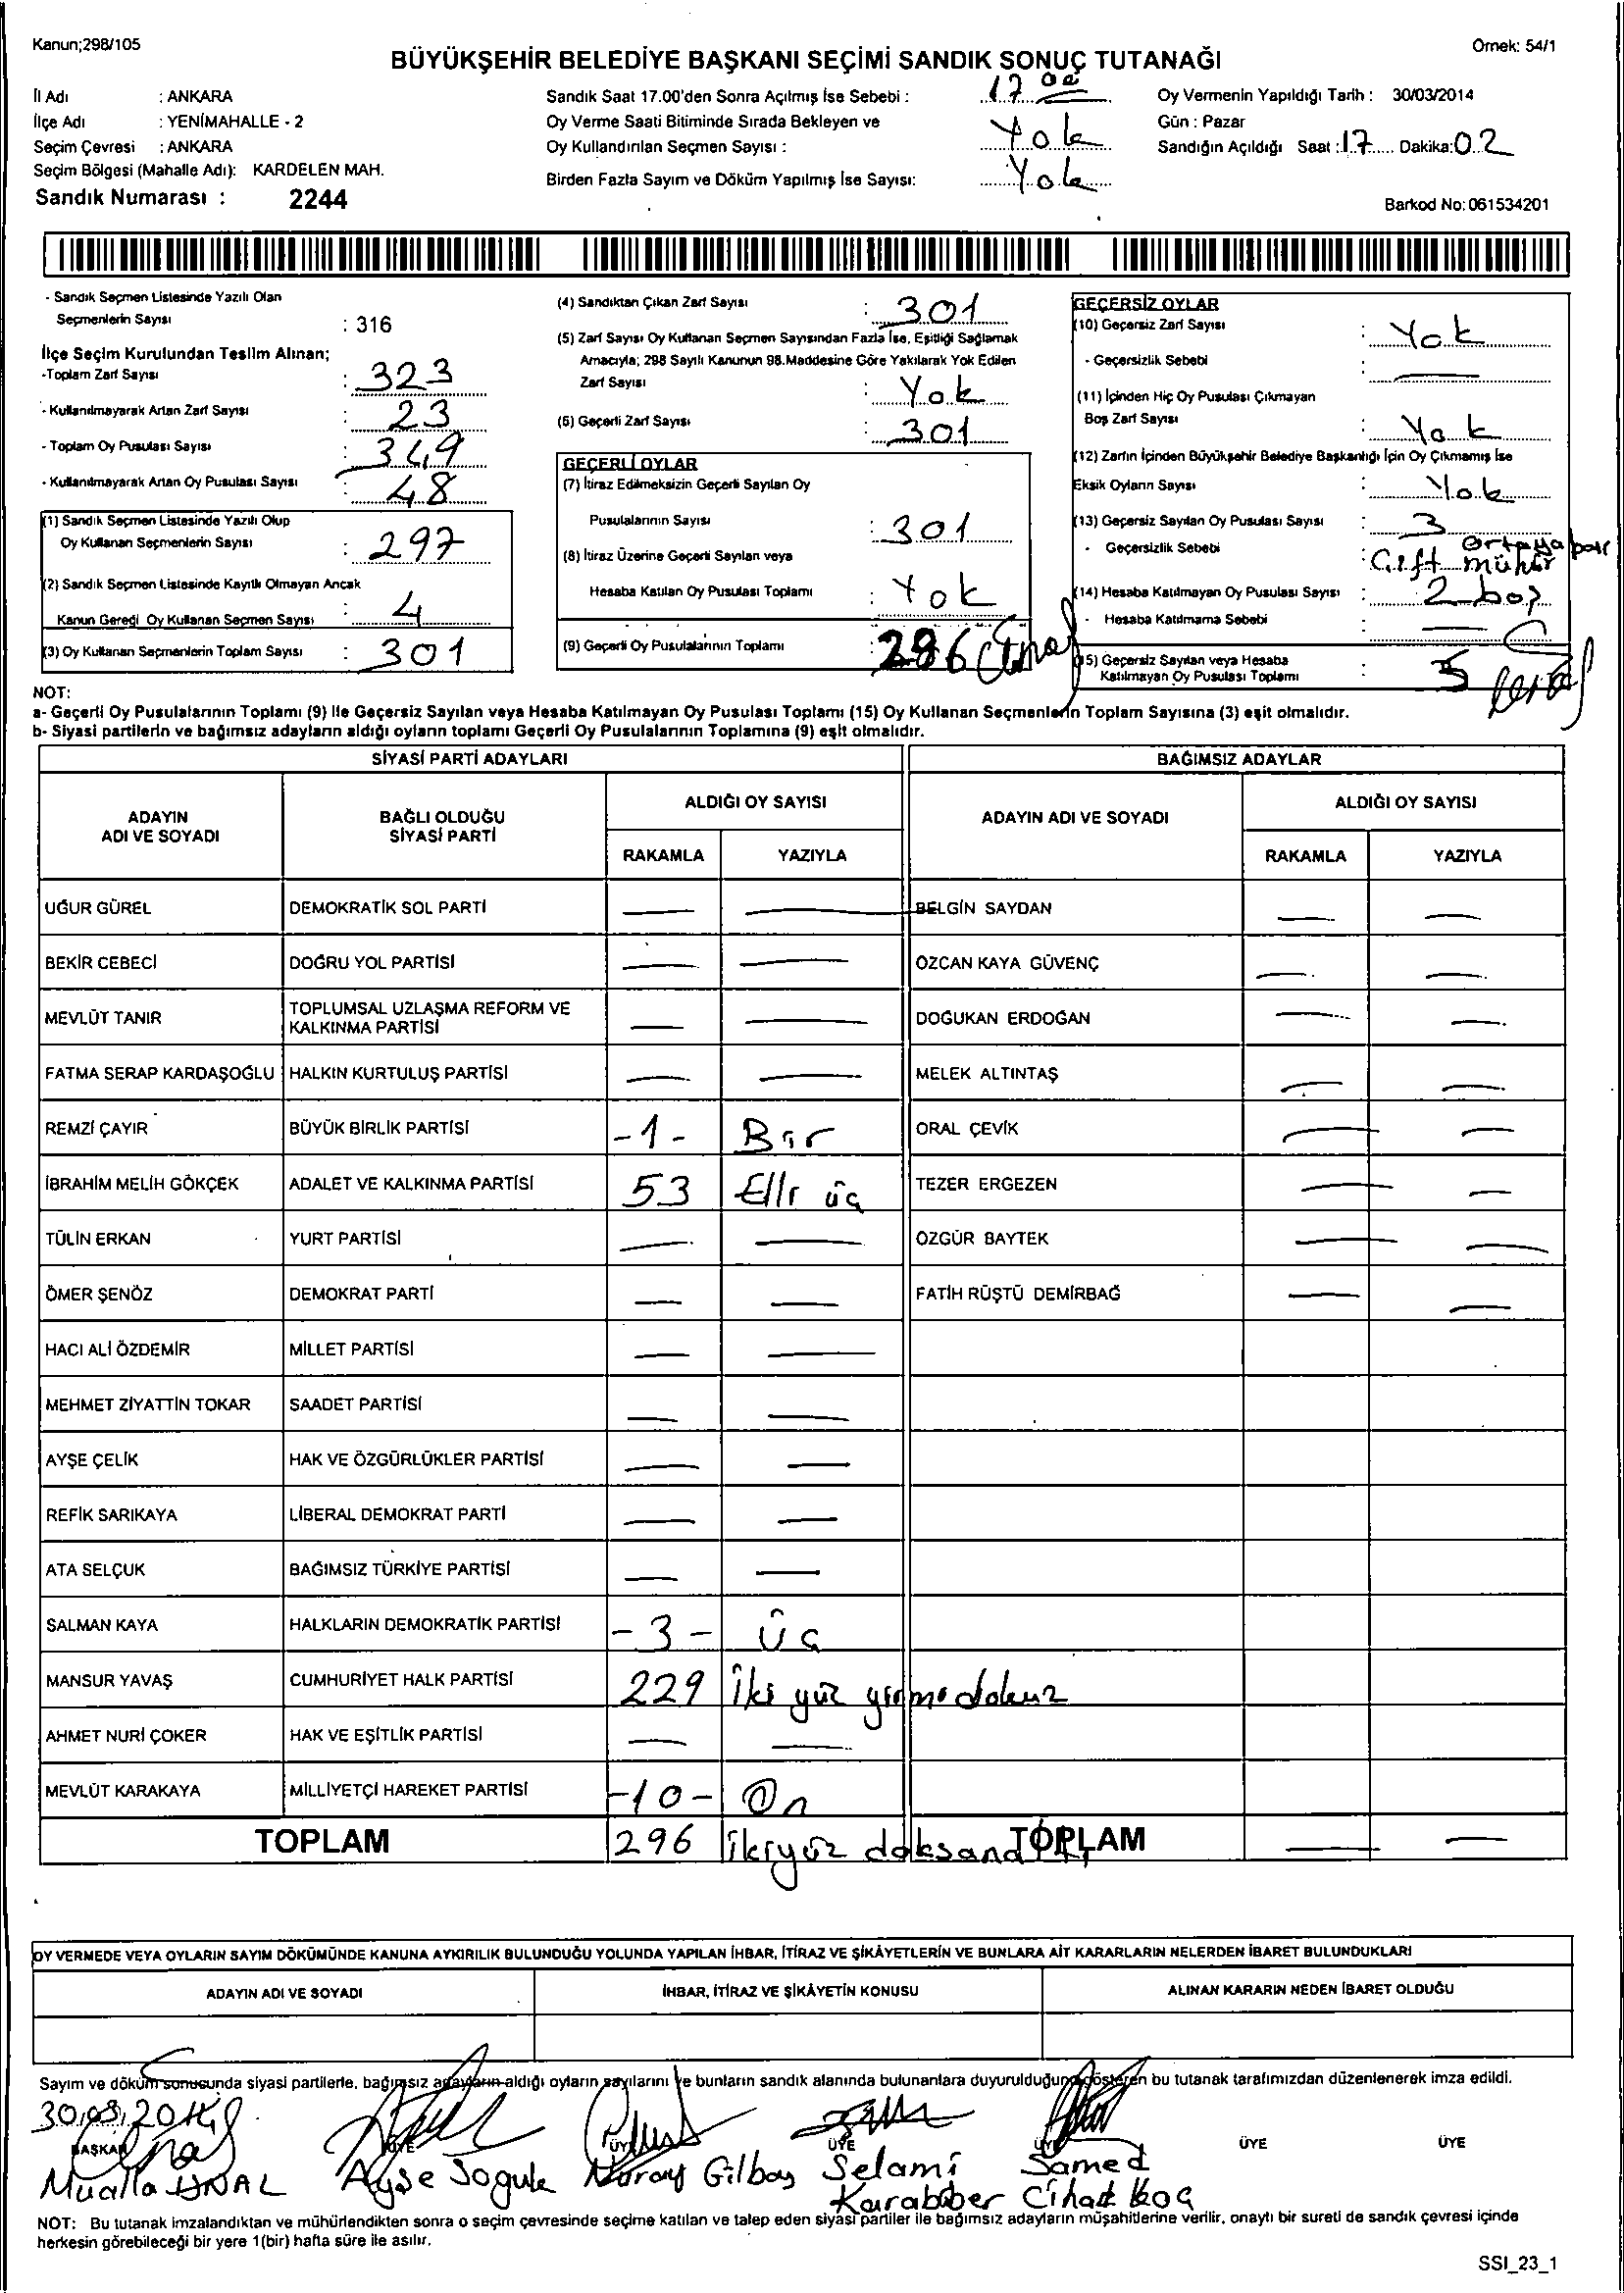 Kanun;298/105
Örnek: 54/1
BÜYÜKŞEHİR BELEDİYE BAŞKANI SEÇİMİ SANDIK SONUÇ TUTANAĞI
İl Adı : ANKARA
İlçe Adı : YENİMAHALLE - 2
Seçim Çevresi : ANKARA
Seçim Bölgesi (Mahalle Adı): KARDELEN MAH.
Sandık Numarası : 2244
Sandık Saat 17.00'den Sonra Açılmış İse Sebebi : 17 00
Oy Verme Saati Bitiminde Sırada Bekleyen ve
Oy Kullandırılan Seçmen Sayısı : Yok
Birden Fazla Sayım ve Döküm Yapılmış İse Sayısı: Yok
Oy Vermenin Yapıldığı Tarih : 30/03/2014
Gün : Pazar
Sandığın Açıldığı Saat : 17 Dakika: 02
Barkod No: 061534201
- Sandık Seçmen Listesinde Yazılı Olan
Seçmenlerin Sayısı : 316
İlçe Seçim Kurulundan Teslim Alınan;
-Toplam Zarf Sayısı : 323
- Kullanılmayarak Artan Zarf Sayısı : 23
- Toplam Oy Pusulası Sayısı : 349
- Kullanılmayarak Artan Oy Pusulası Sayısı : 48
(1) Sandık Seçmen Listesinde Yazılı Olup
Oy Kullanan Seçmenlerin Sayısı : 297
(2) Sandık Seçmen Listesinde Kayıtlı Olmayan Ancak
Kanun Gereği Oy Kullanan Seçmen Sayısı : 4
(3) Oy Kullanan Seçmenlerin Toplam Sayısı : 301
(4) Sandıktan Çıkan Zarf Sayısı : 301
(5) Zarf Sayısı Oy Kullanan Seçmen Sayısından Fazla İse, Eşitliği Sağlamak
Amacıyla; 298 Sayılı Kanunun 98.Maddesine Göre Yakılarak Yok Edilen
Zarf Sayısı : Yok
(6) Geçerli Zarf Sayısı : 301
GEÇERLİ OYLAR
(7) İtiraz Edilmeksizin Geçerli Sayılan Oy
Pusulalarının Sayısı : 301
(8) İtiraz Üzerine Geçerli Sayılan veya
Hesaba Katılan Oy Pusulası Toplamı : Yok
(9) Geçerli Oy Pusulalarının Toplamı : 296
GEÇERSİZ OYLAR
(10) Geçersiz Zarf Sayısı : Yok
- Geçersizlik Sebebi :
(11) İçinden Hiç Oy Pusulası Çıkmayan
Boş Zarf Sayısı : Yok
(12) Zarfın İçinden Büyükşehir Belediye Başkanlığı İçin Oy Çıkmamış İse
Eksik Oyların Sayısı : Yok
(13) Geçersiz Sayılan Oy Pusulası Sayısı : 3
- Geçersizlik Sebebi : Çift mühür
(14) Hesaba Katılmayan Oy Pusulası Sayısı : 2 boş
- Hesaba Katılmama Sebebi :
(15) Geçersiz Sayılan veya Hesaba
Katılmayan Oy Pusulası Toplamı : 5
NOT:
a- Geçerli Oy Pusulalarının Toplamı (9) İle Geçersiz Sayılan veya Hesaba Katılmayan Oy Pusulası Toplamı (15) Oy Kullanan Seçmenlerin Toplam Sayısına (3) eşit olmalıdır.
b- Siyasi partilerin ve bağımsız adayların aldığı oyların toplamı Geçerli Oy Pusulalarının Toplamına (9) eşit olmalıdır.
SİYASİ PARTİ ADAYLARI
BAĞIMSIZ ADAYLAR
ADAYIN
ADI VE SOYADI
BAĞLI OLDUĞU
SİYASİ PARTİ
ALDIĞI OY SAYISI
RAKAMLA YAZIYLA
ADAYIN ADI VE SOYADI
ALDIĞI OY SAYISI
RAKAMLA YAZIYLA
UĞUR GÜREL DEMOKRATİK SOL PARTİ — — BELGİN SAYDAN — —
BEKİR CEBECİ DOĞRU YOL PARTİSİ — — ÖZCAN KAYA GÜVENÇ — —
MEVLÜT TANIR TOPLUMSAL UZLAŞMA REFORM VE
KALKINMA PARTİSİ — — DOĞUKAN ERDOĞAN — —
FATMA SERAP KARDAŞOĞLU HALKIN KURTULUŞ PARTİSİ — — MELEK ALTINTAŞ — —
REMZİ ÇAYIR BÜYÜK BİRLİK PARTİSİ -1- Bir ORAL ÇEVİK — —
İBRAHİM MELİH GÖKÇEK ADALET VE KALKINMA PARTİSİ 53 Elli üç TEZER ERGEZEN — —
TÜLİN ERKAN YURT PARTİSİ — — ÖZGÜR BAYTEK — —
ÖMER ŞENÖZ DEMOKRAT PARTİ — — FATİH RÜŞTÜ DEMİRBAĞ — —
HACI ALİ ÖZDEMİR MİLLET PARTİSİ — —
MEHMET ZİYATTİN TOKAR SAADET PARTİSİ — —
AYŞE ÇELİK HAK VE ÖZGÜRLÜKLER PARTİSİ — —
REFİK SARIKAYA LİBERAL DEMOKRAT PARTİ — —
ATA SELÇUK BAĞIMSIZ TÜRKİYE PARTİSİ — —
SALMAN KAYA HALKLARIN DEMOKRATİK PARTİSİ -3- Üç
MANSUR YAVAŞ CUMHURİYET HALK PARTİSİ 229 İki yüz yirmi dokuz
AHMET NURİ ÇOKER HAK VE EŞİTLİK PARTİSİ — —
MEVLÜT KARAKAYA MİLLİYETÇİ HAREKET PARTİSİ -10- On
TOPLAM 296 ikiyüz doksan TOPLAM — —
OY VERMEDE VEYA OYLARIN SAYIM DÖKÜMÜNDE KANUNA AYKIRILIK BULUNDUĞU YOLUNDA YAPILAN İHBAR, İTİRAZ VE ŞİKÂYETLERİN VE BUNLARA AİT KARARLARIN NELERDEN İBARET BULUNDUKLARI
ADAYIN ADI VE SOYADI İHBAR, İTİRAZ VE ŞİKÂYETİN KONUSU ALINAN KARARIN NEDEN İBARET OLDUĞU
Sayım ve döküm sonucunda siyasi partilerle, bağımsız adayların aldığı oyların sayılarını ve bunların sandık alanında bulunanlara duyurulduğunu gösteren bu tutanak tarafımızdan düzenlenerek imza edildi.
30.03.2014
BAŞKAN ÜYE ÜYE ÜYE ÜYE ÜYE ÜYE
Mualla ÜNAL Ayşe Nuray Gilbaş Selami Samed
Karabiber Cihat Koç
NOT: Bu tutanak imzalandıktan ve mühürlendikten sonra o seçim çevresinde seçime katılan ve talep eden siyasi partiler ile bağımsız adayların müşahitlerine verilir, onaylı bir sureti de sandık çevresi içinde
herkesin görebileceği bir yere 1(bir) hafta süre ile asılır.
SSI_23_1